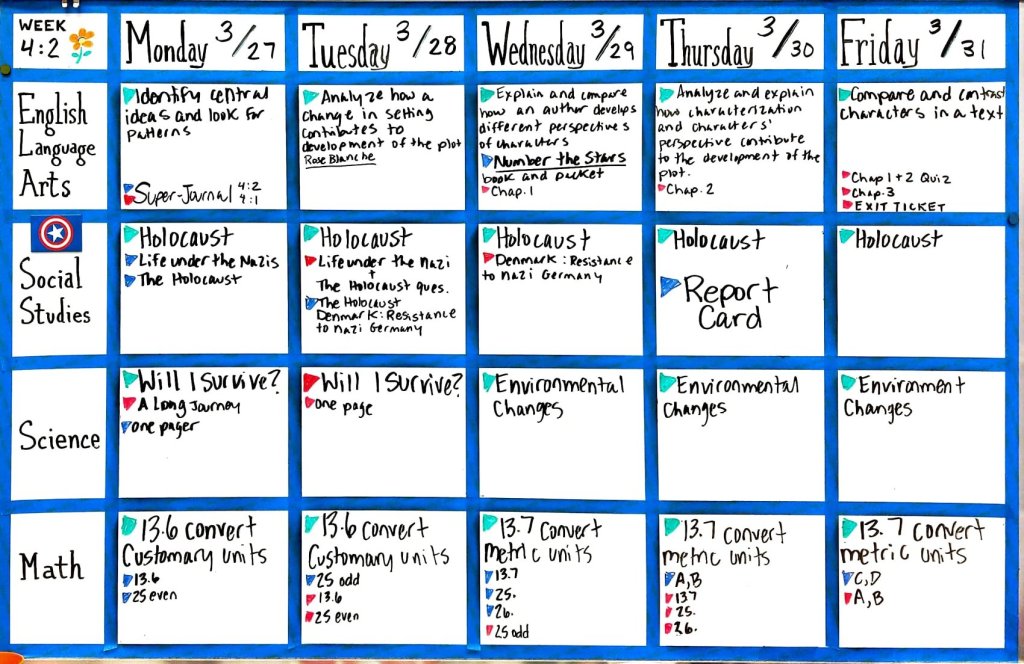 WEEK
4:2
Monday 3/27
Tuesday 3/28
Wednesday 3/29
Thursday 3/30
Friday 3/31
English
Language
Arts
Identify central
ideas and look for
patterns
Super-Journal 4:2
4:1
Analyze how a
change in setting
contributes to
development of the plot
Rose Blanche
Explain and compare
how an author develops
different perspectives
of characters
Number the Stars
book and packet
Chap. 1
Analyze and explain
how characterization
and characters'
perspective contribute
to the development of the
plot.
Chap. 2
Compare and contrast
characters in a text
Chap 1+2 Quiz
Chap. 3
EXIT TICKET
Social
Studies
Holocaust
Life under the Nazis
The Holocaust
Holocaust
Life under the Nazi
+
The Holocaust ques.
The Holocaust
Denmark: Resistance
to Nazi Germany
Holocaust
Denmark: Resistance
to Nazi Germany
Holocaust
Report
Card
Holocaust
Science
Will I Survive?
A Long Journey
one pager
Will I Survive?
one page
Environmental
Changes
Environmental
Changes
Environment
Changes
Math
13.6 convert
Customary units
13.6
25 even
13.6 convert
Customary units
25 odd
13.6
25 even
13.7 convert
metric units
13.7
25.
26.
25 odd
13.7 convert
metric units
A, B
137
25.
26.
13.7 convert
metric units
C, D
A, B